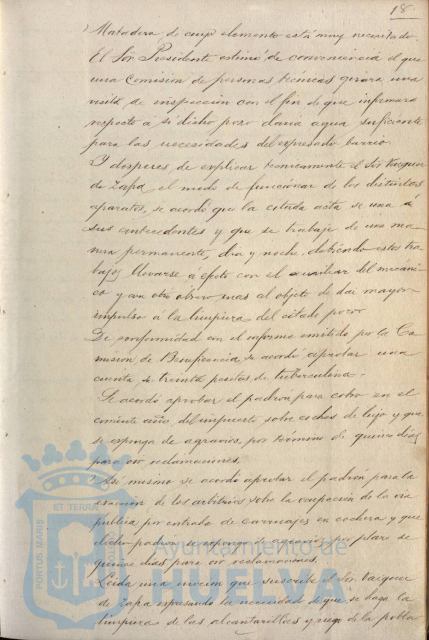 18
Matadero de cuyo elemento está muy necesitado.
El Sor. Presidente estimó de conveniencia el que
una Comisión de personas técnicas girara una
visita de inspección con el fin de que informara
respecto á si dicho pozo daria agua suficiente
para las necesidades del expresado barrio.
Y despues de explicar tecnicamente el Sor Vazquez
de Zapa el modo de funcionar de los distintos
aparatos, se acordó que la citada acta se una á
sus antecedentes y que se trabaje de una ma-
nera permanente, dia y noche, debiendo estos tra-
bajos llevarse á efecto con el auxiliar del mecáni-
co y con otro obrero mas al objeto de dar mayor
impulso á la limpieza del citado pozo
De conformidad con el informe emitido por la Co-
mision de Beneficencia se acordó aprobar una
cuenta de treinta pesetas de tuberculina.
Se acordó aprobar el padrón para cobro en el
corriente año, del impuesto sobre coches de lujo y que
se exponga de agravios por término de quince dias
para oir reclamaciones.
Asi mismo se acordó aprobar el padrón para la
exaccion de los arbitrios sobre la ocupación de la via
publica por entrada de carruajes en cocheras y que
dicho padron se exponga de agravios por plazo de
quince dias para oir reclamaciones.
Leida una mocion que suscribe el Sor. Vazquez
de Zapa expresando la necesidad de que se haga la
limpieza de las alcantarillas y riego de la pobla
PORTUS MARIS
ET TERRAE
Ayuntamiento de
HUELVA